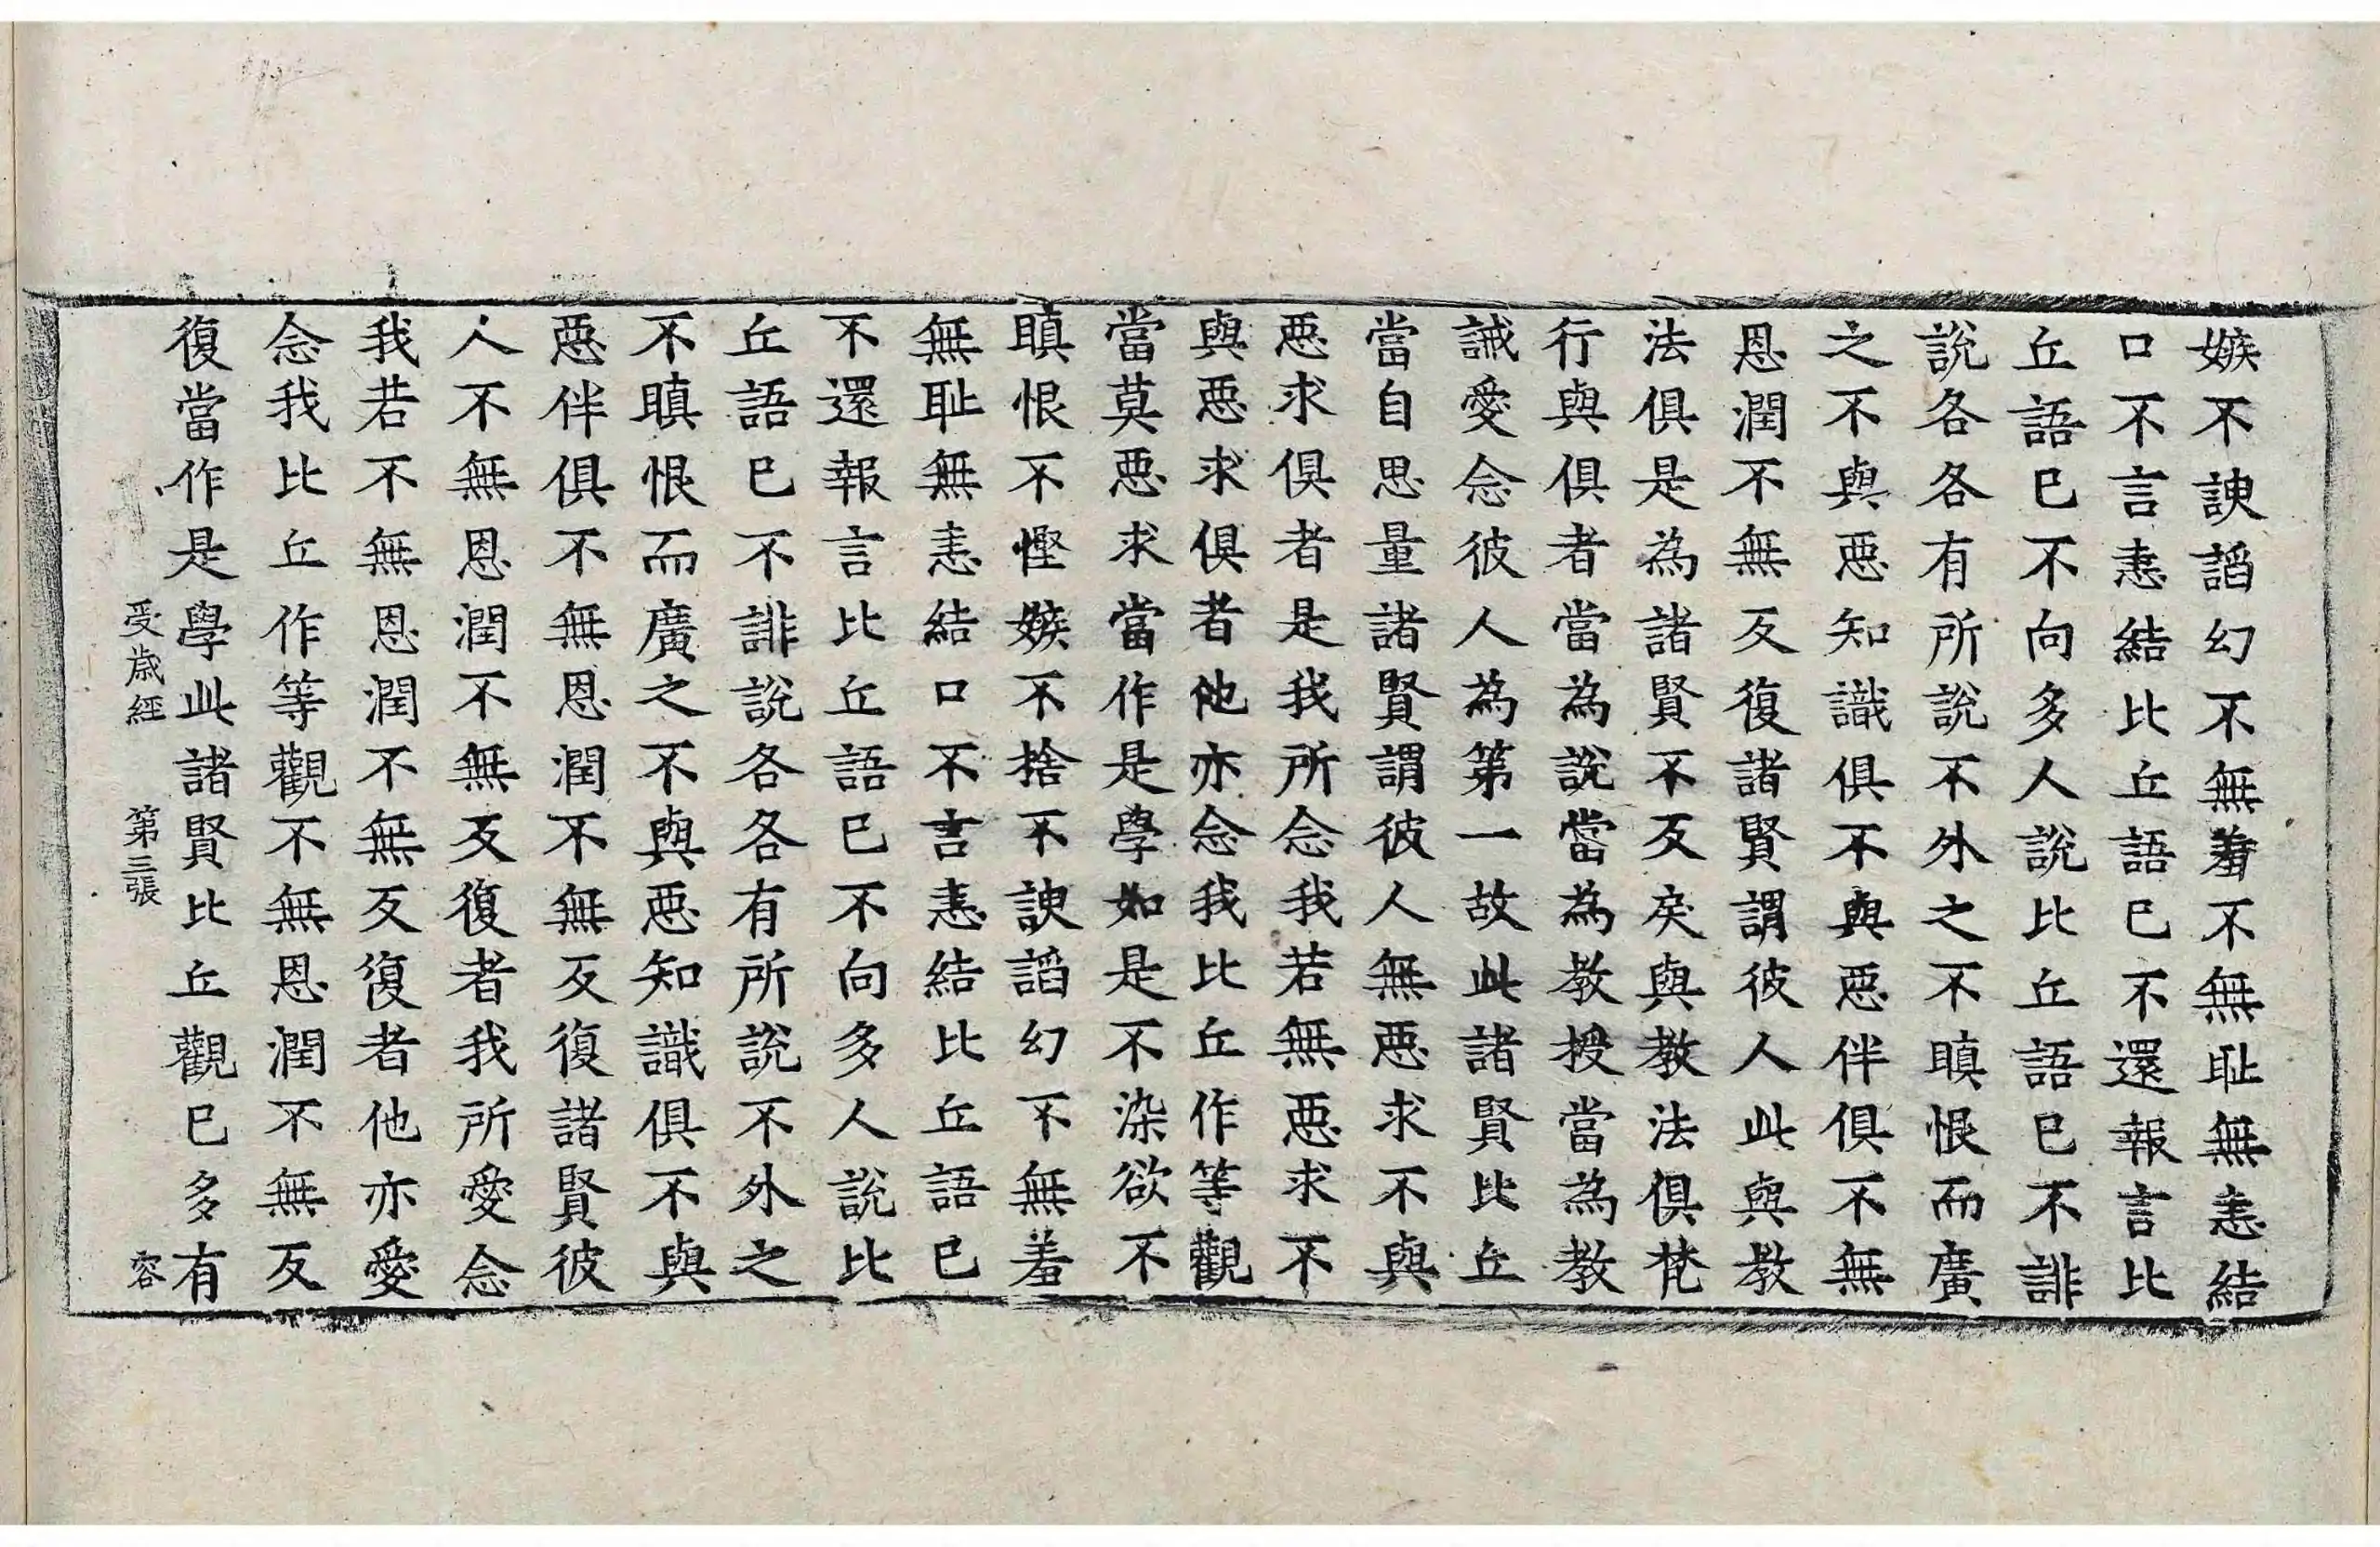 嫉不諛諂幻不無羞不無耻無恚結
口不言恚結比丘語已不還報言比
丘語已不向多人說比丘語已不誹
說各各有所說不外之不瞋恨而廣
之不與惡知識俱不與惡伴俱不無
恩潤不無反復諸賢謂彼人此與教
法俱是為諸賢不反戾與教法俱梵
行與俱者當為說當為教授當為教
誡愛念彼人為第一故此諸賢比丘
當自思量諸賢謂彼人無惡求不與
惡求俱者是我所念我若無惡求不
與惡求俱者他亦念我比丘作等觀
當莫惡求當作是學如是不染欲不
瞋恨不慳嫉不捨不諛諂幻不無羞
無耻無恚結口不言恚結比丘語已
不還報言比丘語已不向多人說比
丘語已不誹說各各有所說不外之
不瞋恨而廣之不與惡知識俱不與
惡伴俱不無恩潤不無反復諸賢彼
人不無恩潤不無反復者我所愛念
我若不無恩潤不無反復者他亦愛
念我比丘作等觀不無恩潤不無反
復當作是學此諸賢比丘觀已多有
受歲經 第三張 容